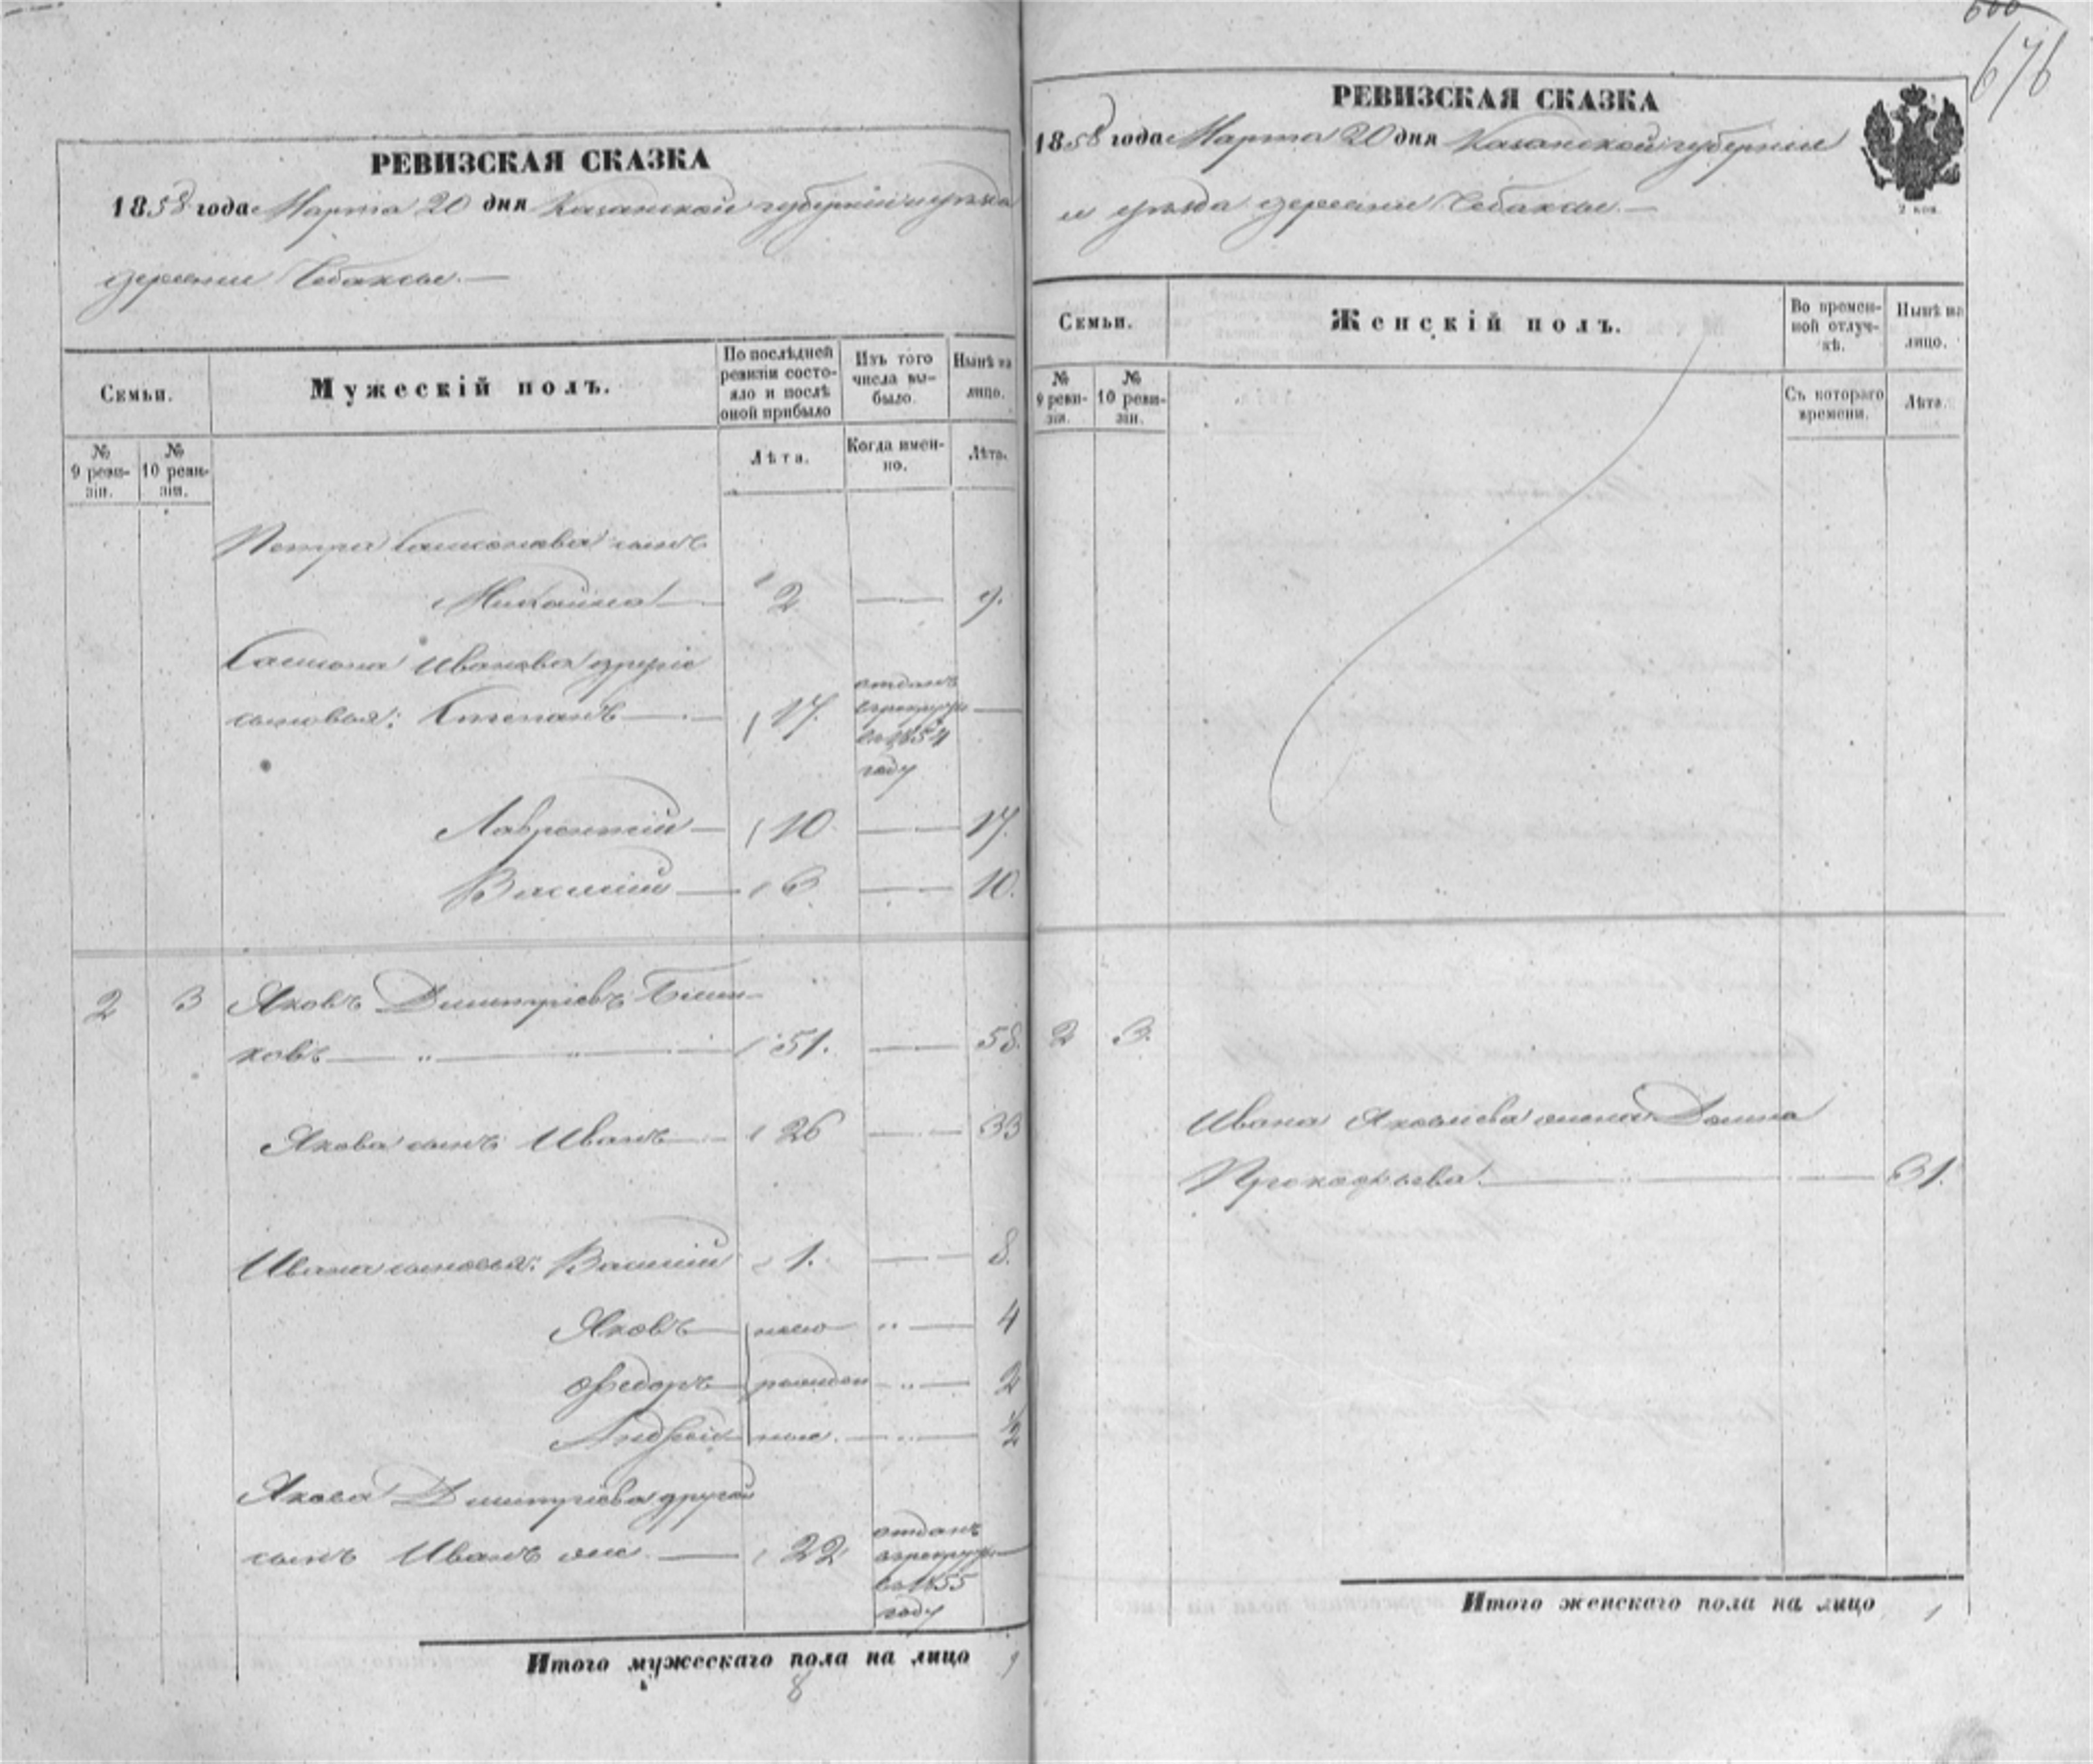 РЕВИЗСКАЯ СКАЗКА
1858 года Марта 20 дня Казанской губерніи и уѣзда
деревни
Семьи.
Мужескій полъ.
По послѣдней ревизіи состояло и послѣ оной прибыло
Изъ того числа выбыло.
Нынѣ на лицо.
№ 9 ревизіи.
№ 10 ревизіи.
Лѣта.
Когда именно.
Лѣта.
Петра Самсонова сынъ
Михайла 2 9.
Самсона Иванова другіе
сыновья: Степанъ 17. отданъ
в рекруты
въ 1854
году
Лаврентій 10. 17.
Василій 3 10.
2 3 Яковъ Димитріевъ
ковъ 51. 58.
Якова сынъ Иванъ 26 33
Ивана сыновья: Василій 1. 8.
Яковъ после 4
Федоръ рожден 2
Андрей ные. 1/2
Якова Димитріева другой
сынъ Иванъ же 22 отданъ
в рекруты
въ 1855
году
Итого мужескаго пола на лицо 9
8
676
РЕВИЗСКАЯ СКАЗКА
1858 года Марта 20 дня Казанской губерніи
и уѣзда деревни
2 коп.
Семьи.
Женскій полъ.
Во временной отлучкѣ.
Нынѣ на лицо.
№ 9 ревизіи.
№ 10 ревизіи.
Съ котораго времени.
Лѣта.
2 3.
Ивана Яковлева жена Домна
Прокофьева. 31.
Итого женскаго пола на лицо 1